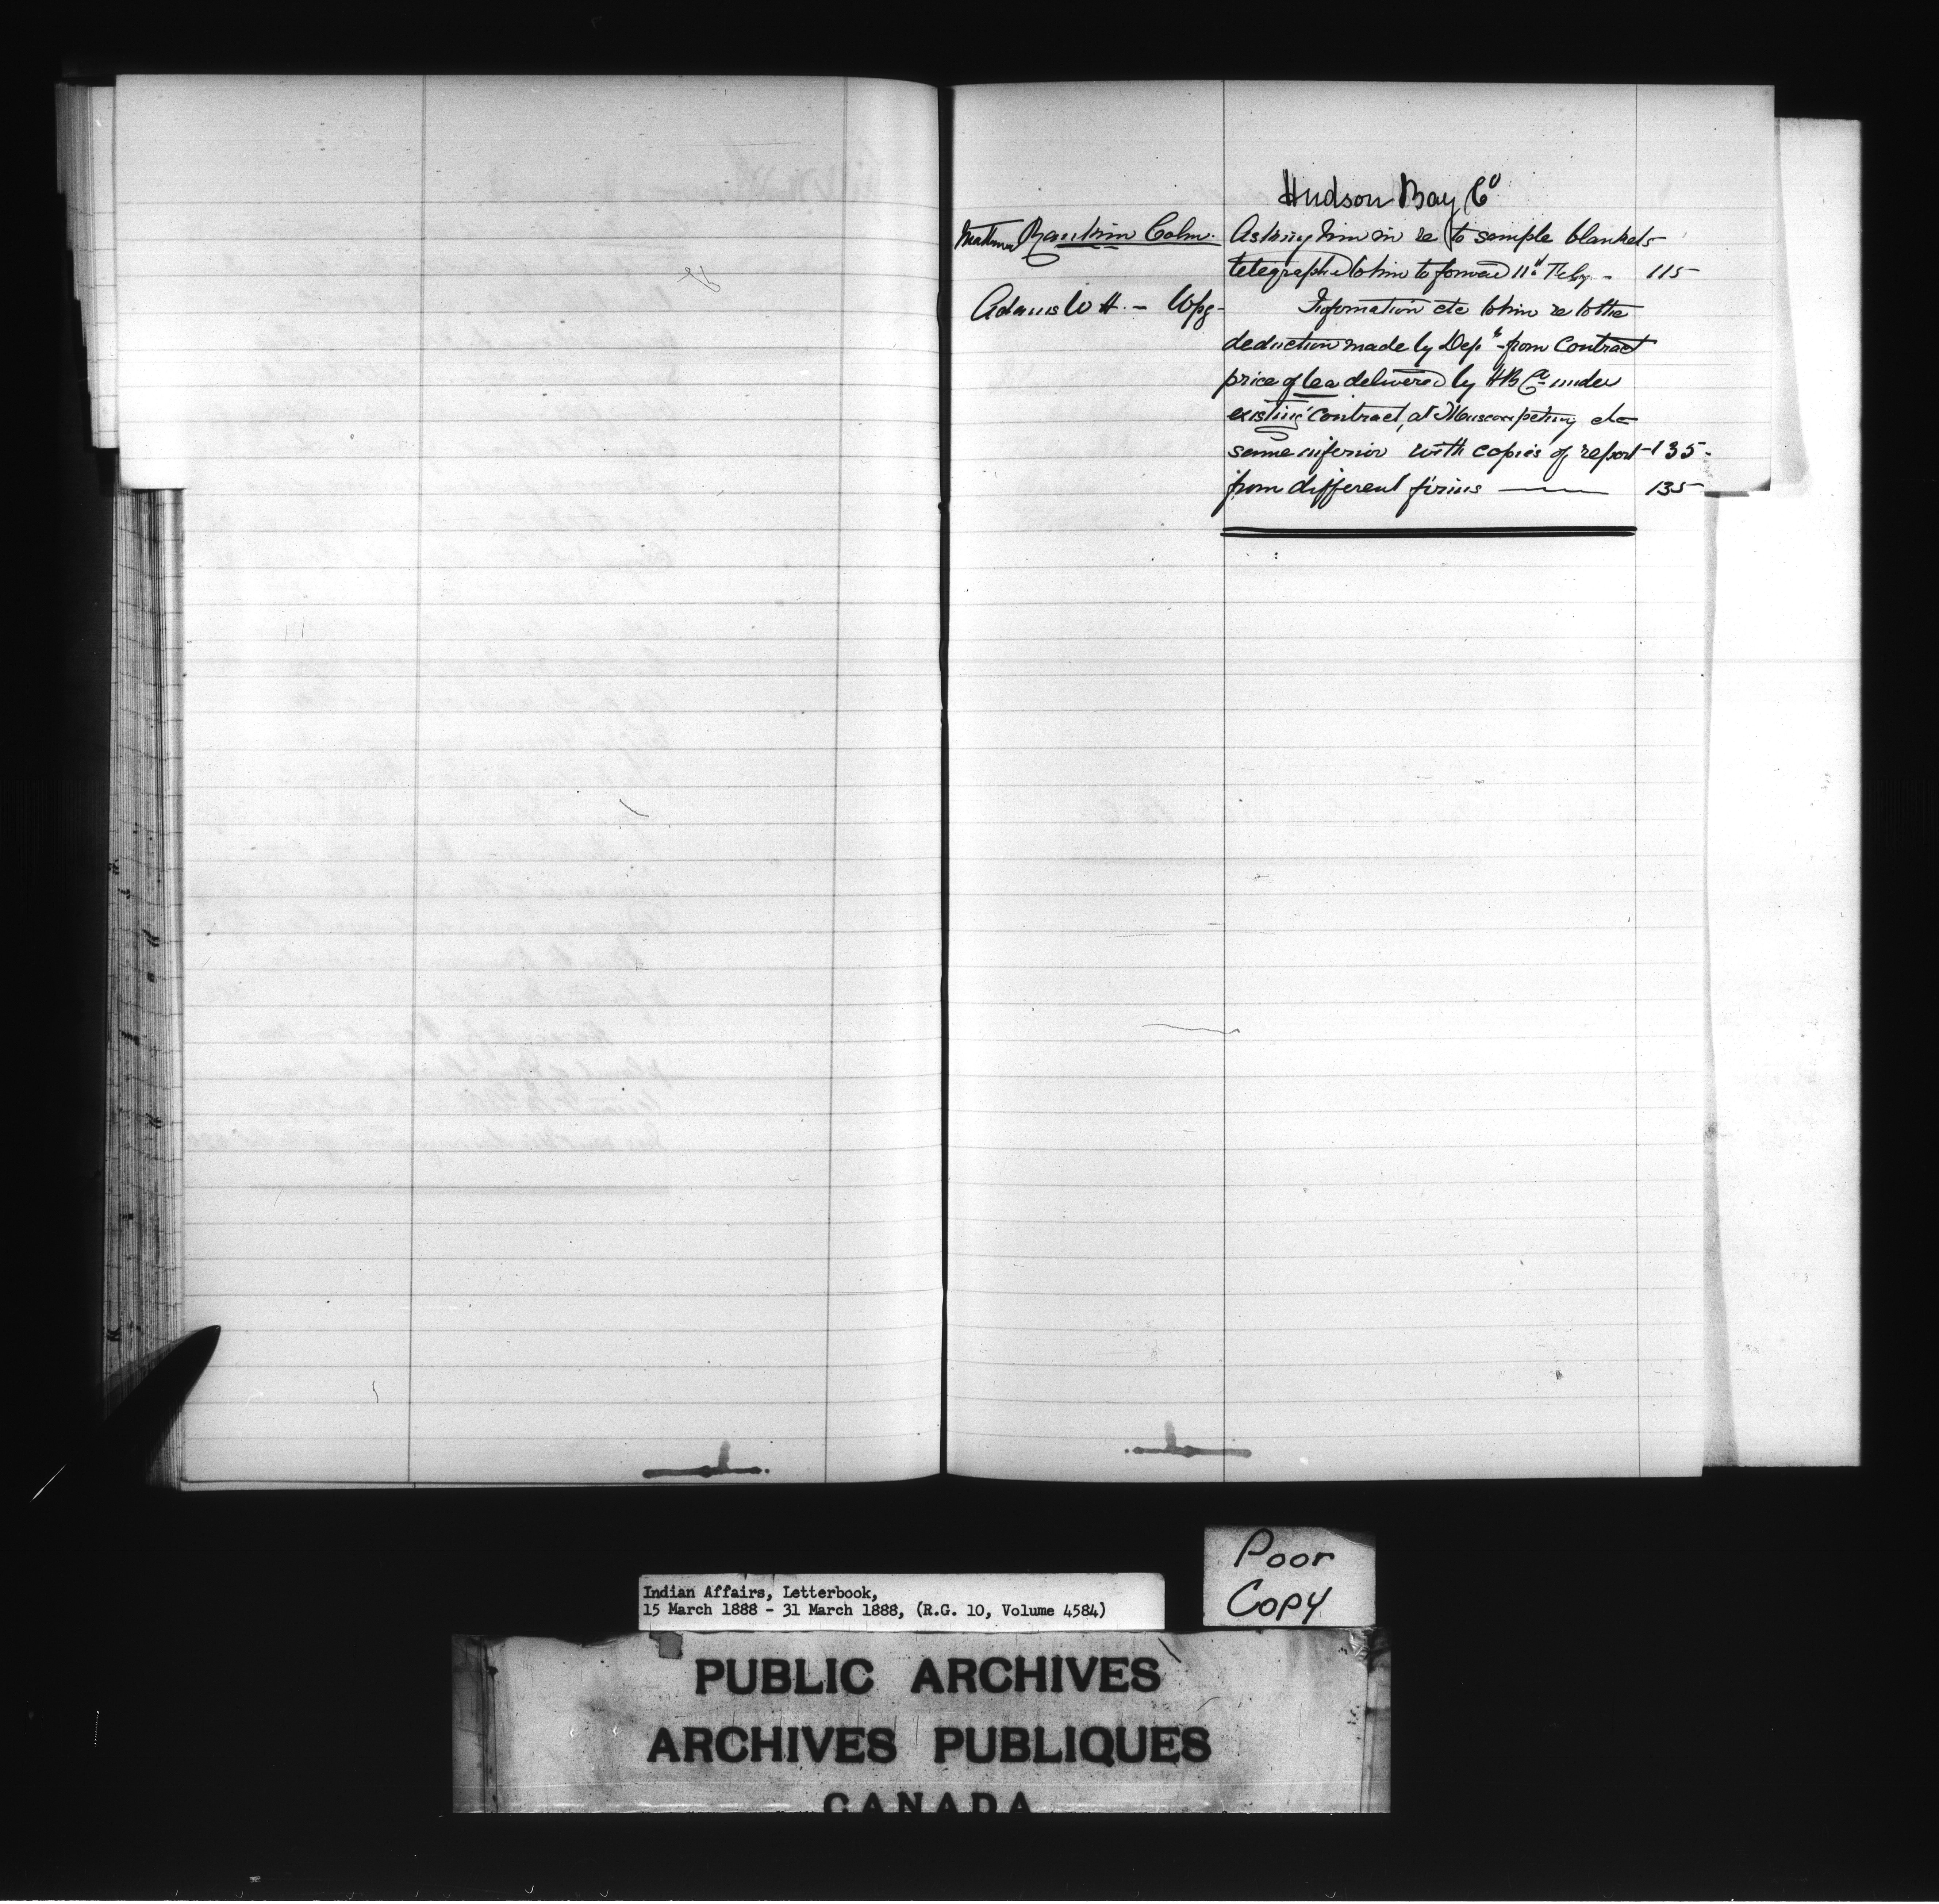 Hudson Bay Co
Colm. Asking him in re to sample blankets
telegraphed to him to forward 11th Feby - 115
Adams W H. - Wpg - Information etc to him re to the
deduction made by Dept - from Contract
price of tea delivered by HB Co under
existing contract, at Muscowpetung etc
same inferior with copies of report - 135 -
from different firms — 135
Poor
Copy
Indian Affairs, Letterbook,
15 March 1888 - 31 March 1888, (R.G. 10, Volume 4584)
PUBLIC ARCHIVES
ARCHIVES PUBLIQUES
CANADA